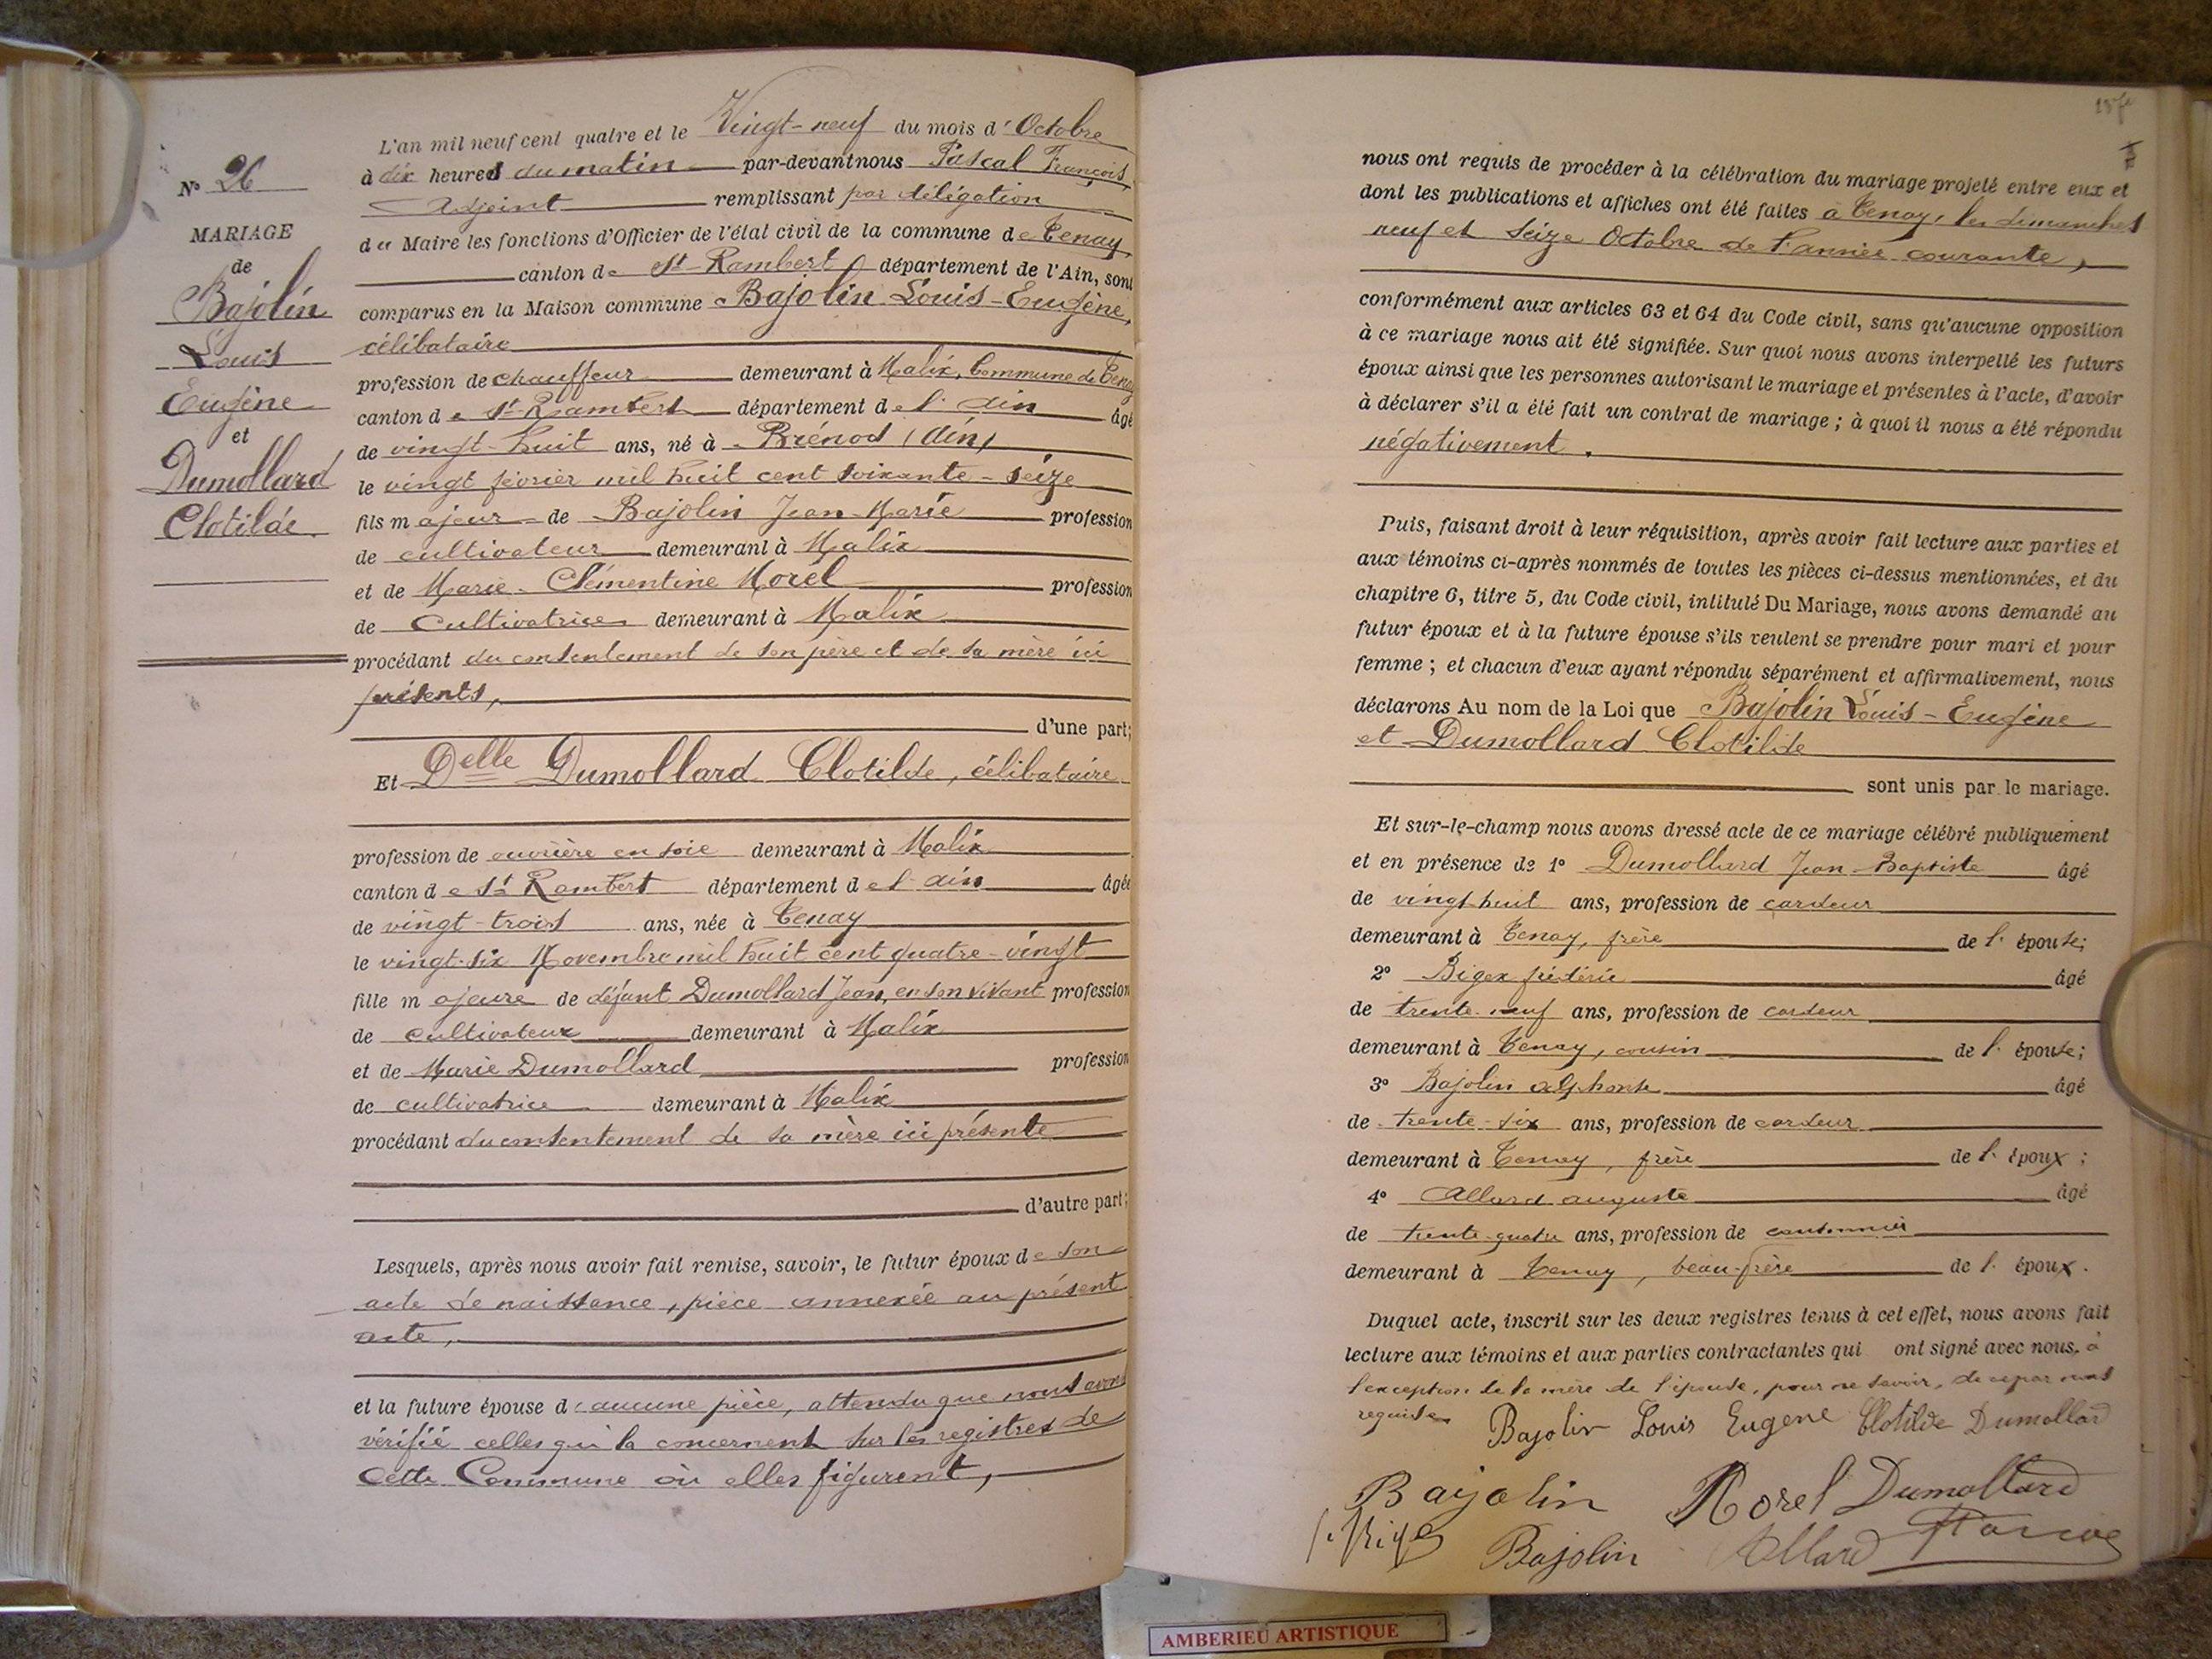 N° 26
MARIAGE
de
Bajolin
Louis
Eugène
et
Dumollard
Clotilde.
L'an mil neuf cent quatre et le Vingt-neuf du mois d'Octobre
à dix heures du matin par-devant nous Pascal François,
Adjoint remplissant par délégation
du Maire les fonctions d'Officier de l'état civil de la commune de Tenay
canton de St-Rambert département de l'Ain, sont
comparus en la Maison commune Bajolin Louis-Eugène,
célibataire
profession de chauffeur demeurant à Malix, Commune de Tenay
canton de St-Rambert département de l'Ain âgé
de vingt-huit ans, né à Brénod (Ain)
le vingt février mil huit cent soixante-seize
fils majeur de Bajolin Jean-Marie profession
de cultivateur demeurant à Malix
et de Marie-Clémentine Morel profession
de Cultivatrice demeurant à Malix
procédant du consentement de son père et de sa mère ici
présents,
d'une part;
Et Delle Dumollard Clotilde, célibataire
profession de ouvrière en soie demeurant à Malix
canton de St Rambert département de l'Ain âgée
de vingt-trois ans, née à Tenay
le vingt-six Novembre mil huit cent quatre-vingt
fille majeure de défunt Dumollard Jean, en son vivant profession
de cultivateur demeurant à Malix
et de Marie Dumollard profession
de cultivatrice demeurant à Malix
procédant du consentement de sa mère ici présente
d'autre part;
Lesquels, après nous avoir fait remise, savoir, le futur époux de son
acte de naissance, pièce annexée au présent
acte,
et la future épouse d'aucune pièce, attendu que nous avons
vérifié celles qui la concernent sur les registres de
cette Commune où elles figurent,
nous ont requis de procéder à la célébration du mariage projeté entre eux et
dont les publications et affiches ont été faites à Tenay, les dimanches
neuf et seize Octobre de l'année courante,
conformément aux articles 63 et 64 du Code civil, sans qu'aucune opposition
à ce mariage nous ait été signifiée. Sur quoi nous avons interpellé les futurs
époux ainsi que les personnes autorisant le mariage et présentes à l'acte, d'avoir
à déclarer s'il a été fait un contrat de mariage ; à quoi il nous a été répondu
négativement.
Puis, faisant droit à leur réquisition, après avoir fait lecture aux parties et
aux témoins ci-après nommés de toutes les pièces ci-dessus mentionnées, et du
chapitre 6, titre 5, du Code civil, intitulé Du Mariage, nous avons demandé au
futur époux et à la future épouse s'ils veulent se prendre pour mari et pour
femme ; et chacun d'eux ayant répondu séparément et affirmativement, nous
déclarons Au nom de la Loi que Bajolin Louis-Eugène
et Dumollard Clotilde
sont unis par le mariage.
Et sur-le-champ nous avons dressé acte de ce mariage célébré publiquement
et en présence de 1° Dumollard Jean-Baptiste âgé
de vingt-huit ans, profession de cardeur
demeurant à Tenay, frère de l'épouse;
2° Bigex frédéric âgé
de trente-neuf ans, profession de cardeur
demeurant à Tenay, cousin de l'épouse;
3° Bajolin Alphonse âgé
de trente-six ans, profession de cardeur
demeurant à Tenay, frère de l'époux;
4° Allard auguste âgé
de trente-quatre ans, profession de cantonnier
demeurant à Tenay, beau-frère de l'époux.
Duquel acte, inscrit sur les deux registres tenus à cet effet, nous avons fait
lecture aux témoins et aux parties contractantes qui ont signé avec nous. à
l'exception de la mère de l'épouse, pour ne savoir, de ce par nous
requise
Bajolin Louis Eugène Clotilde Dumollard
Bajolin Morel Dumollard
Bajolin Allard
AMBERIEU ARTISTIQUE